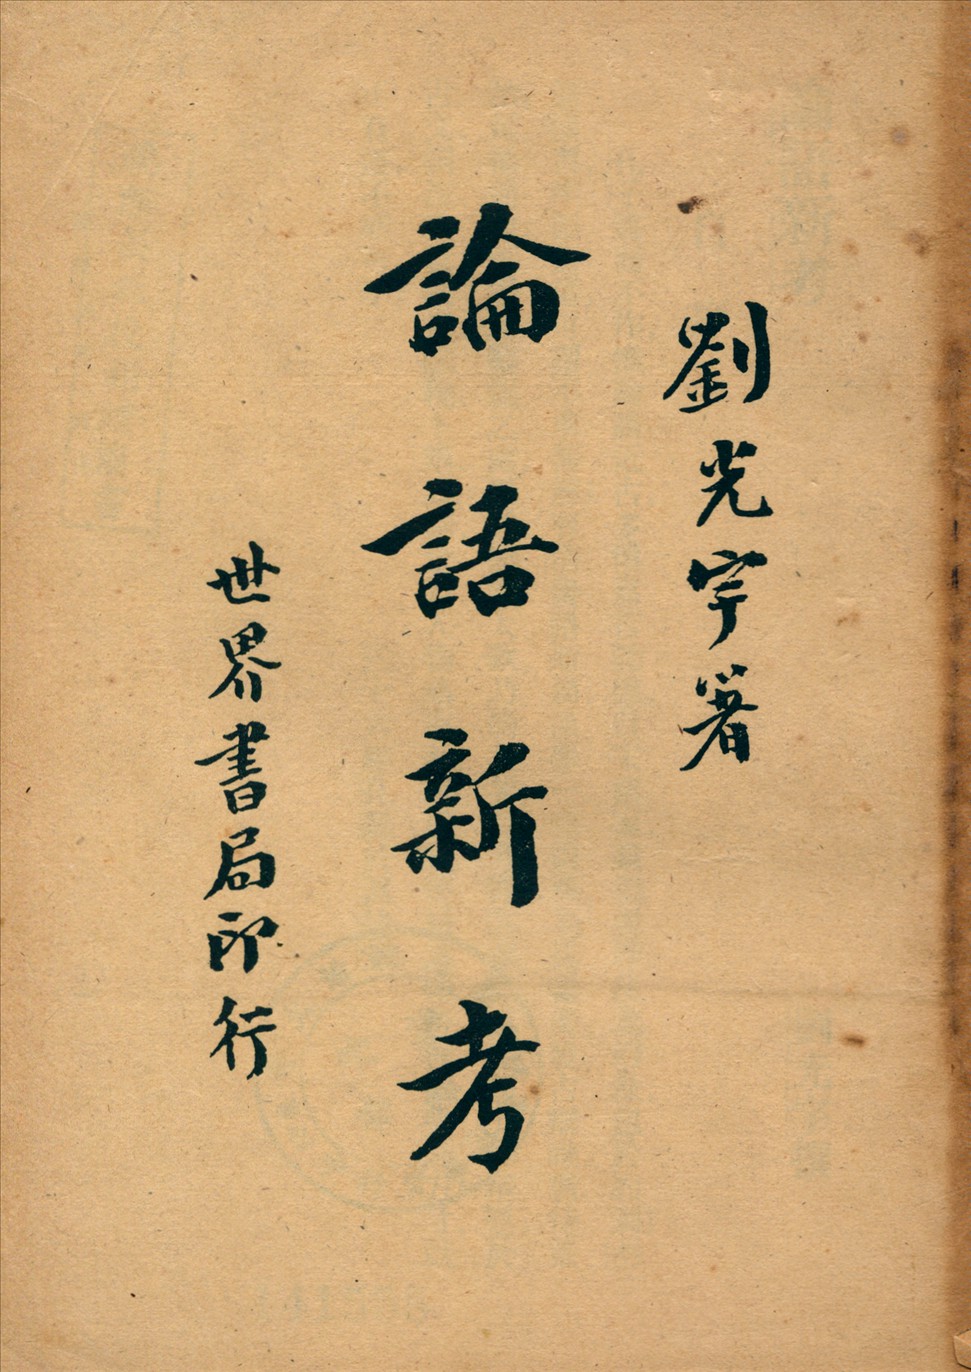 劉光宇署
論語新考
世界書局印行